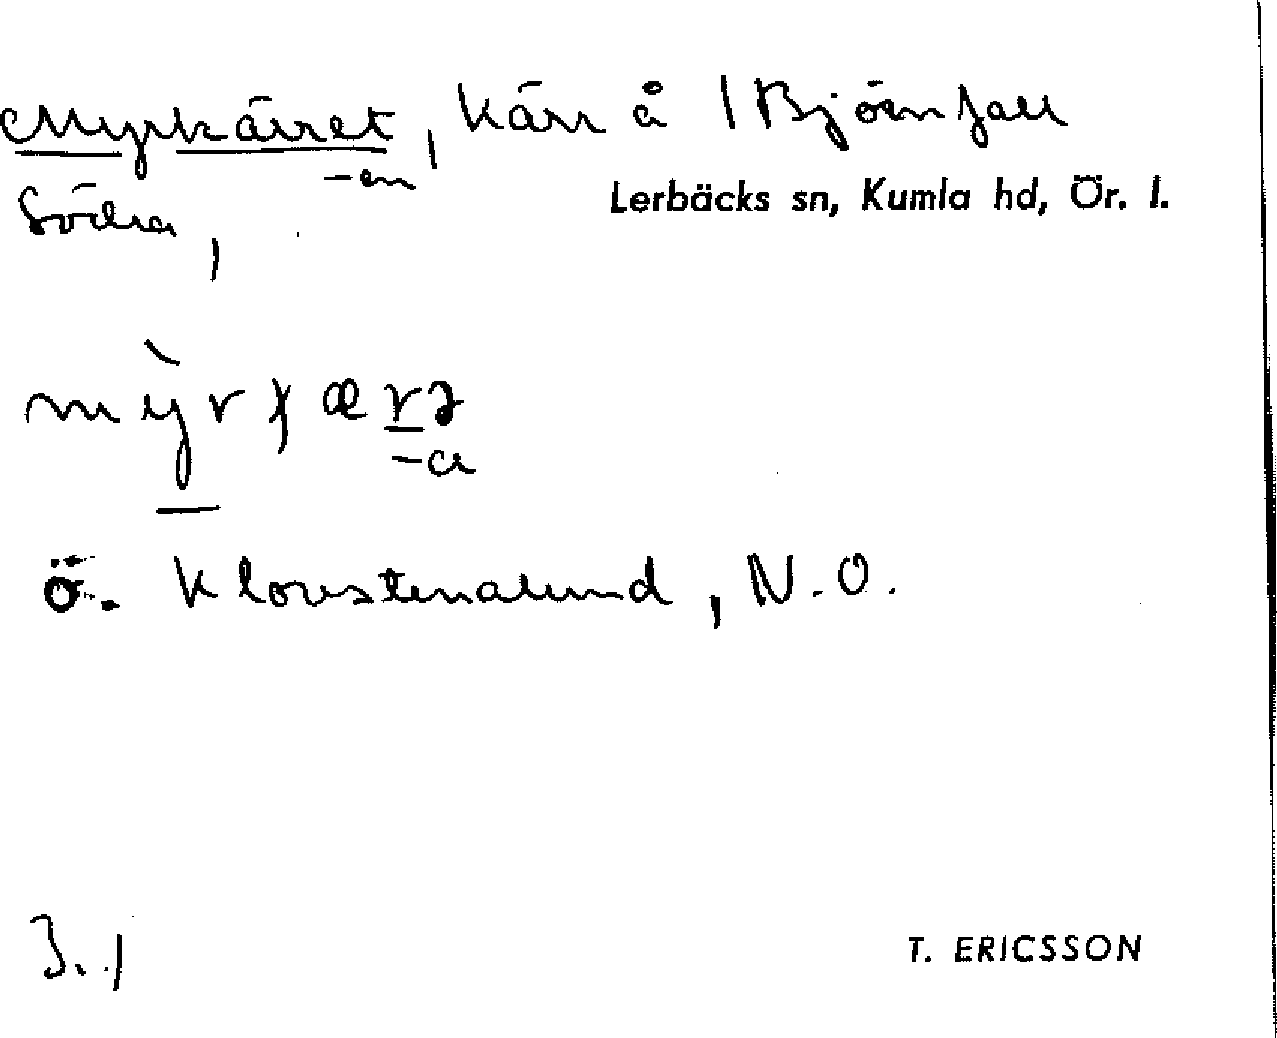 Myrkärret, Kärr å 1 Björnfall
-en
Södra,
Lerbäcks sn, Kumla hd, Ör. l.
mỳrʃærə
-a
Ö. Klovstenalund, N.O.
3.1
T. ERICSSON